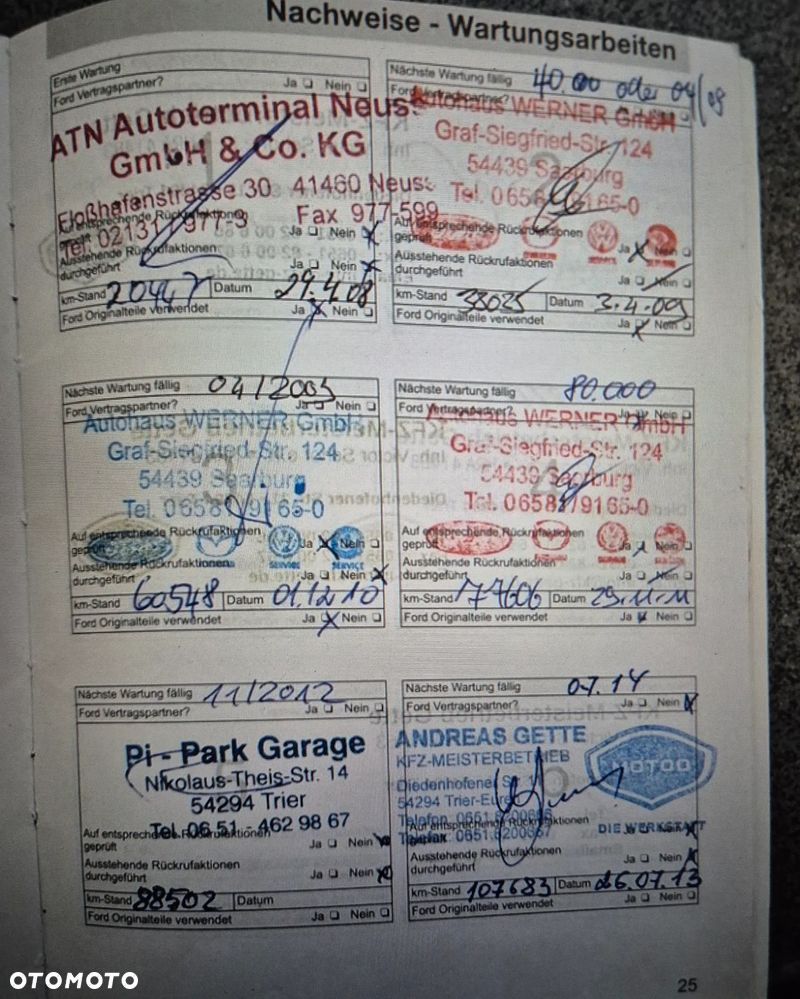 Nachweise - Wartungsarbeiten
Erste Wartung
Ford Vertragspartner? Ja Nein
ATN Autoterminal Neuss
GmbH & Co. KG
Floßhafenstrasse 30 41460 Neuss
Tel. 02131 / 977 Fax 977 599
Auf entsprechende Rückrufaktionen
geprüft Ja Nein
Ausstehende Rückrufaktionen
durchgeführt Ja Nein
km-Stand 20447 Datum 29.4.08
Ford Originalteile verwendet Ja Nein
Nächste Wartung fällig 40.000 oder 04/09
Ford Vertragspartner?
Autohaus WERNER GmbH
Graf-Siegfried-Str. 124
54439 Saarburg
Tel. 0658 65-0
Auf entsprechende Rückrufaktionen
geprüft Ja Nein
Ausstehende Rückrufaktionen
durchgeführt Ja Nein
km-Stand 38025 Datum 3.4.09
Ford Originalteile verwendet Ja Nein
Nächste Wartung fällig 04/2009
Ford Vertragspartner? Ja Nein
Autohaus WERNER GmbH
Graf-Siegfried-Str. 124
54439 Saarburg
Tel. 0658 /9165-0
Auf entsprechende Rückrufaktionen
geprüft Ja Nein
SERVICE SERVICE
Ausstehende Rückrufaktionen
durchgeführt Ja Nein
km-Stand 60548 Datum 01.12.10
Ford Originalteile verwendet Ja Nein
Nächste Wartung fällig 80.000
Ford Vertragspartner? Ja Nein
Autohaus WERNER GmbH
Graf-Siegfried-Str. 124
54439 Saarburg
Tel. 0658 /9165-0
Auf entsprechende Rückrufaktionen
geprüft Ja Nein
Ausstehende Rückrufaktionen
durchgeführt Ja Nein
km-Stand 77606 Datum 29.11.11
Ford Originalteile verwendet Ja Nein
Nächste Wartung fällig 11/2012
Ford Vertragspartner? Ja Nein
Pi - Park Garage
Nikolaus-Theis-Str. 14
54294 Trier
Tel. 06 51 - 462 98 67
Auf entsprechende Rückrufaktionen
geprüft Ja Nein
Ausstehende Rückrufaktionen
durchgeführt Ja Nein
km-Stand 88502 Datum
Ford Originalteile verwendet Ja Nein
Nächste Wartung fällig 07.14
Ford Vertragspartner? Ja Nein
ANDREAS GETTE
KFZ-MEISTERBETRIEB
MOTOO
Diedenhofener Str. 1
54294 Trier-Euren
Telefon 0651.82006
Telefax 0651.8200667
DIE WERKSTATT
Auf entsprechende Rückrufaktionen
geprüft
Ausstehende Rückrufaktionen
durchgeführt Ja Nein
km-Stand 107683 Datum 26.07.13
Ford Originalteile verwendet Ja Nein
25
OTOMOTO